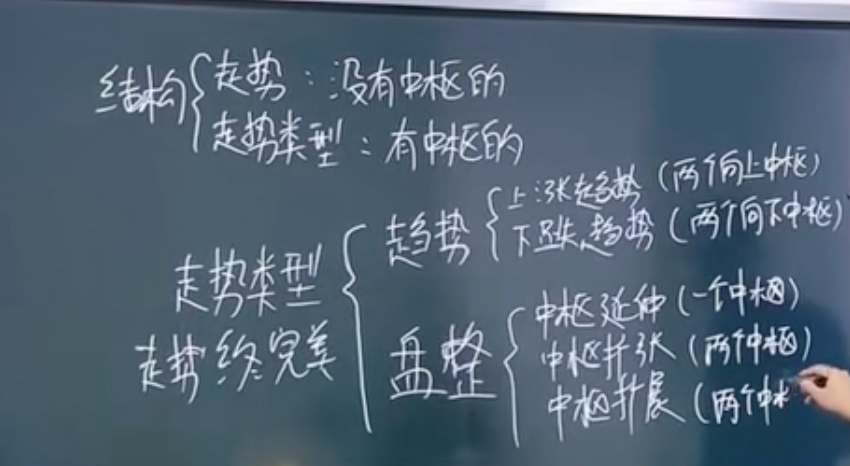 结构
走势：没有中枢的
走势类型：有中枢的
走势类型
走势终完美
趋势
上涨趋势（两个向上中枢）
下跌趋势（两个向下中枢）
盘整
中枢延伸（一个中枢）
中枢扩张（两个中枢）
中枢扩展（两个中